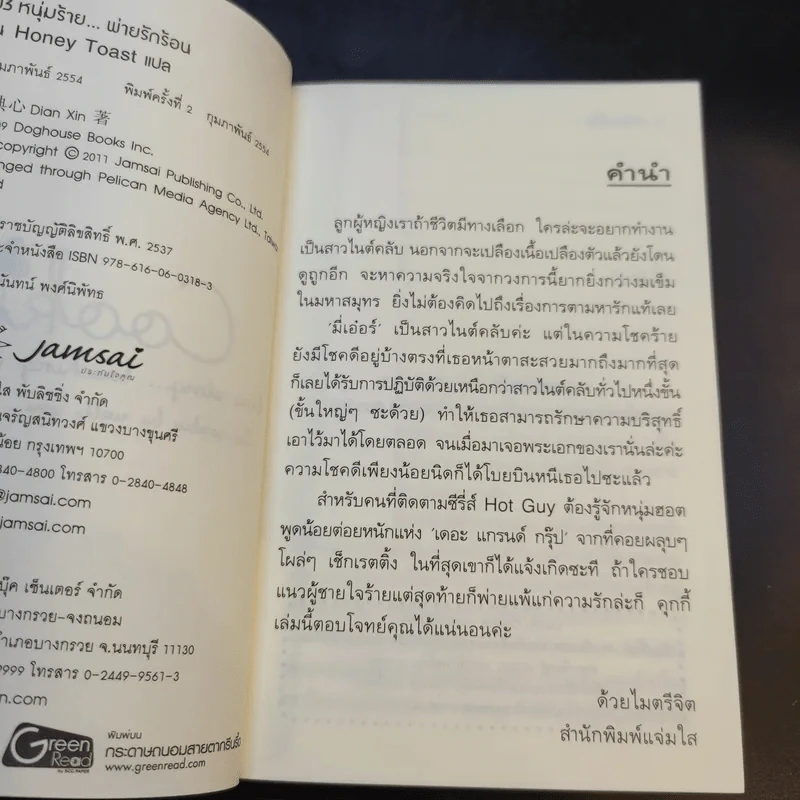 หนุ่มร้าย... พ่ายรักร้อน
Honey Toast แปล
2554
พิมพ์ครั้งที่ 2 กุมภาพันธ์ 2554
心 Dian Xin 著
Doghouse Books Inc.
copyright © 2011 Jamsai Publishing Co., Ltd.
through Pelican Media Agency Ltd., Taiwan
พ.ศ. 2537
ISBN 978-616-06-0318-3
พงศ์นิพัทธ
Jamsai
ประทับใจคุณ
พับลิชชิ่ง จำกัด
แขวงบางขุนศรี
กรุงเทพฯ 10700
โทรสาร 0-2840-4848
@jamsai.com
jamsai.com
เซ็นเตอร์ จำกัด
บางกรวย-จงถนอม
อ.บางกรวย จ.นนทบุรี 11130
9999 โทรสาร 0-2449-9561-3
Green Read
พิมพ์บน
กระดาษถนอมสายตากรีนรี้ด
www.greenread.com
คำนำ
ลูกผู้หญิงเราถ้าชีวิตมีทางเลือก ใครล่ะจะอยากทำงาน
เป็นสาวไนต์คลับ นอกจากจะเปลืองเนื้อเปลืองตัวแล้วยังโดน
ดูถูกอีก จะหาความจริงใจจากวงการนี้ยากยิ่งกว่างมเข็ม
ในมหาสมุทร ยิ่งไม่ต้องคิดไปถึงเรื่องการตามหารักแท้เลย
'มี่เอ๋อร์' เป็นสาวไนต์คลับค่ะ แต่ในความโชคร้าย
ยังมีโชคดีอยู่บ้างตรงที่เธอหน้าตาสะสวยมากถึงมากที่สุด
ก็เลยได้รับการปฏิบัติด้วยเหนือกว่าสาวไนต์คลับทั่วไปหนึ่งขั้น
(ขั้นใหญ่ๆ ซะด้วย) ทำให้เธอสามารถรักษาความบริสุทธิ์
เอาไว้มาได้โดยตลอด จนเมื่อมาเจอพระเอกของเรานั่นล่ะค่ะ
ความโชคดีเพียงน้อยนิดก็ได้โบยบินหนีเธอไปซะแล้ว
สำหรับคนที่ติดตามซีรี่ส์ Hot Guy ต้องรู้จักหนุ่มฮอต
พูดน้อยต่อยหนักแห่ง 'เดอะ แกรนด์ กรุ๊ป' จากที่คอยผลุบๆ
โผล่ๆ เช็กเรตติ้ง ในที่สุดเขาก็ได้แจ้งเกิดซะที ถ้าใครชอบ
แนวผู้ชายใจร้ายแต่สุดท้ายก็พ่ายแพ้แก่ความรักล่ะก็ คุกกี้
เล่มนี้ตอบโจทย์คุณได้แน่นอนค่ะ
ด้วยไมตรีจิต
สำนักพิมพ์แจ่มใส